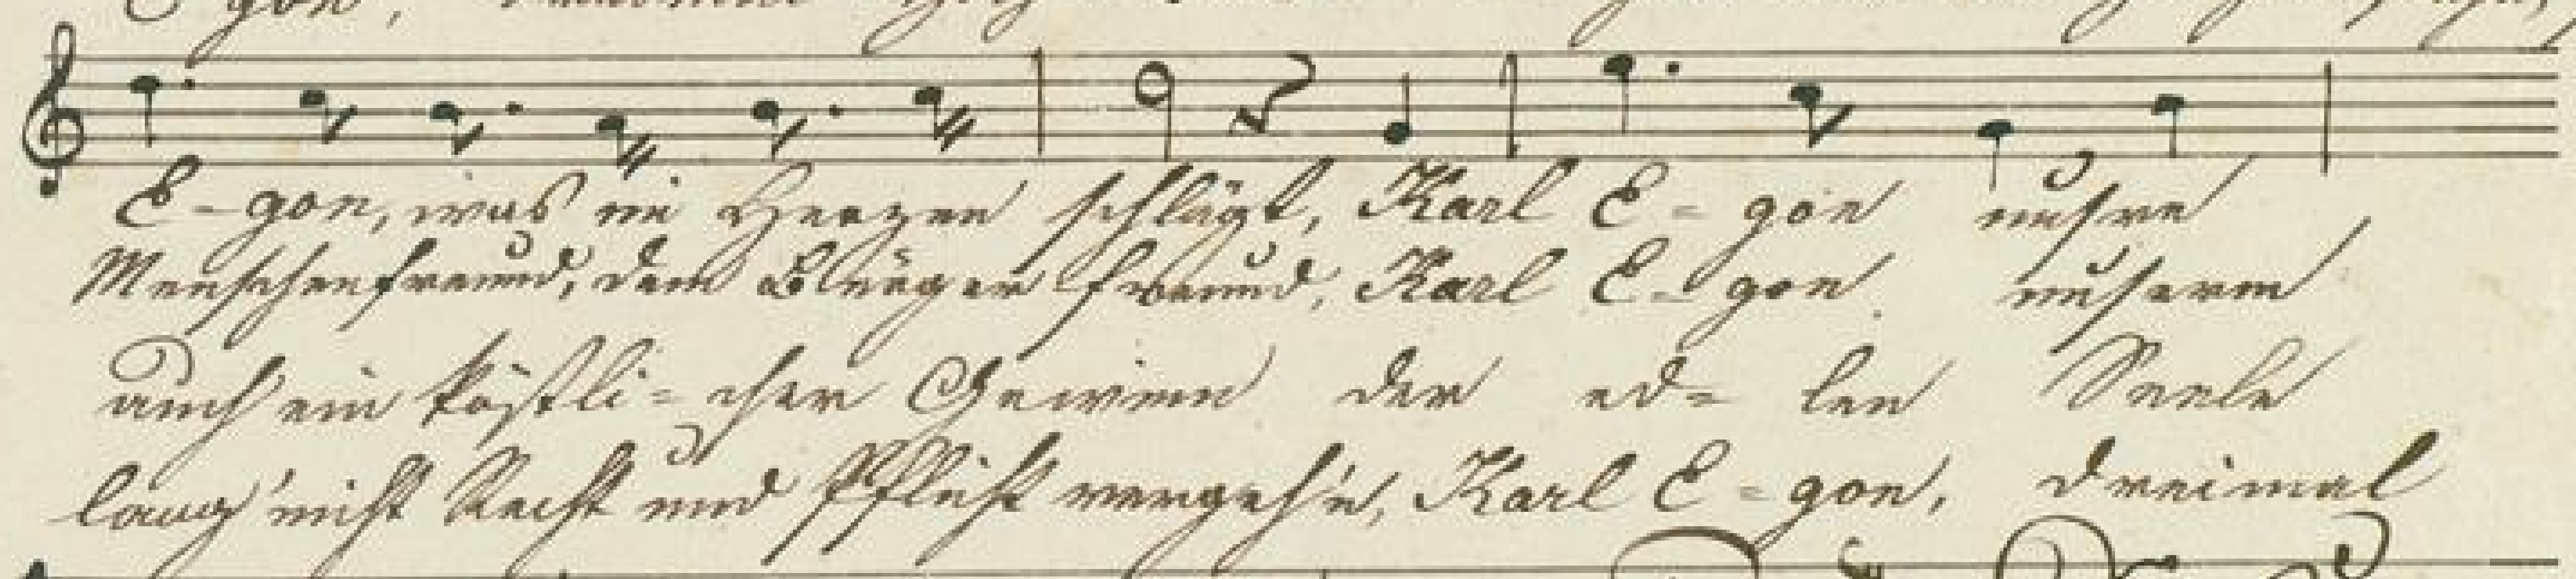 E-gon, was im Herzen schlägt, Karl E-gon unsre
Menschenfreund, dem Bürgerfreund, Karl E-gon unserm
auch ein köstli-cher Gewinn der ed-len Seele
lang' nicht Recht und Pflicht vergeh'n, Karl E-gon, dreimal